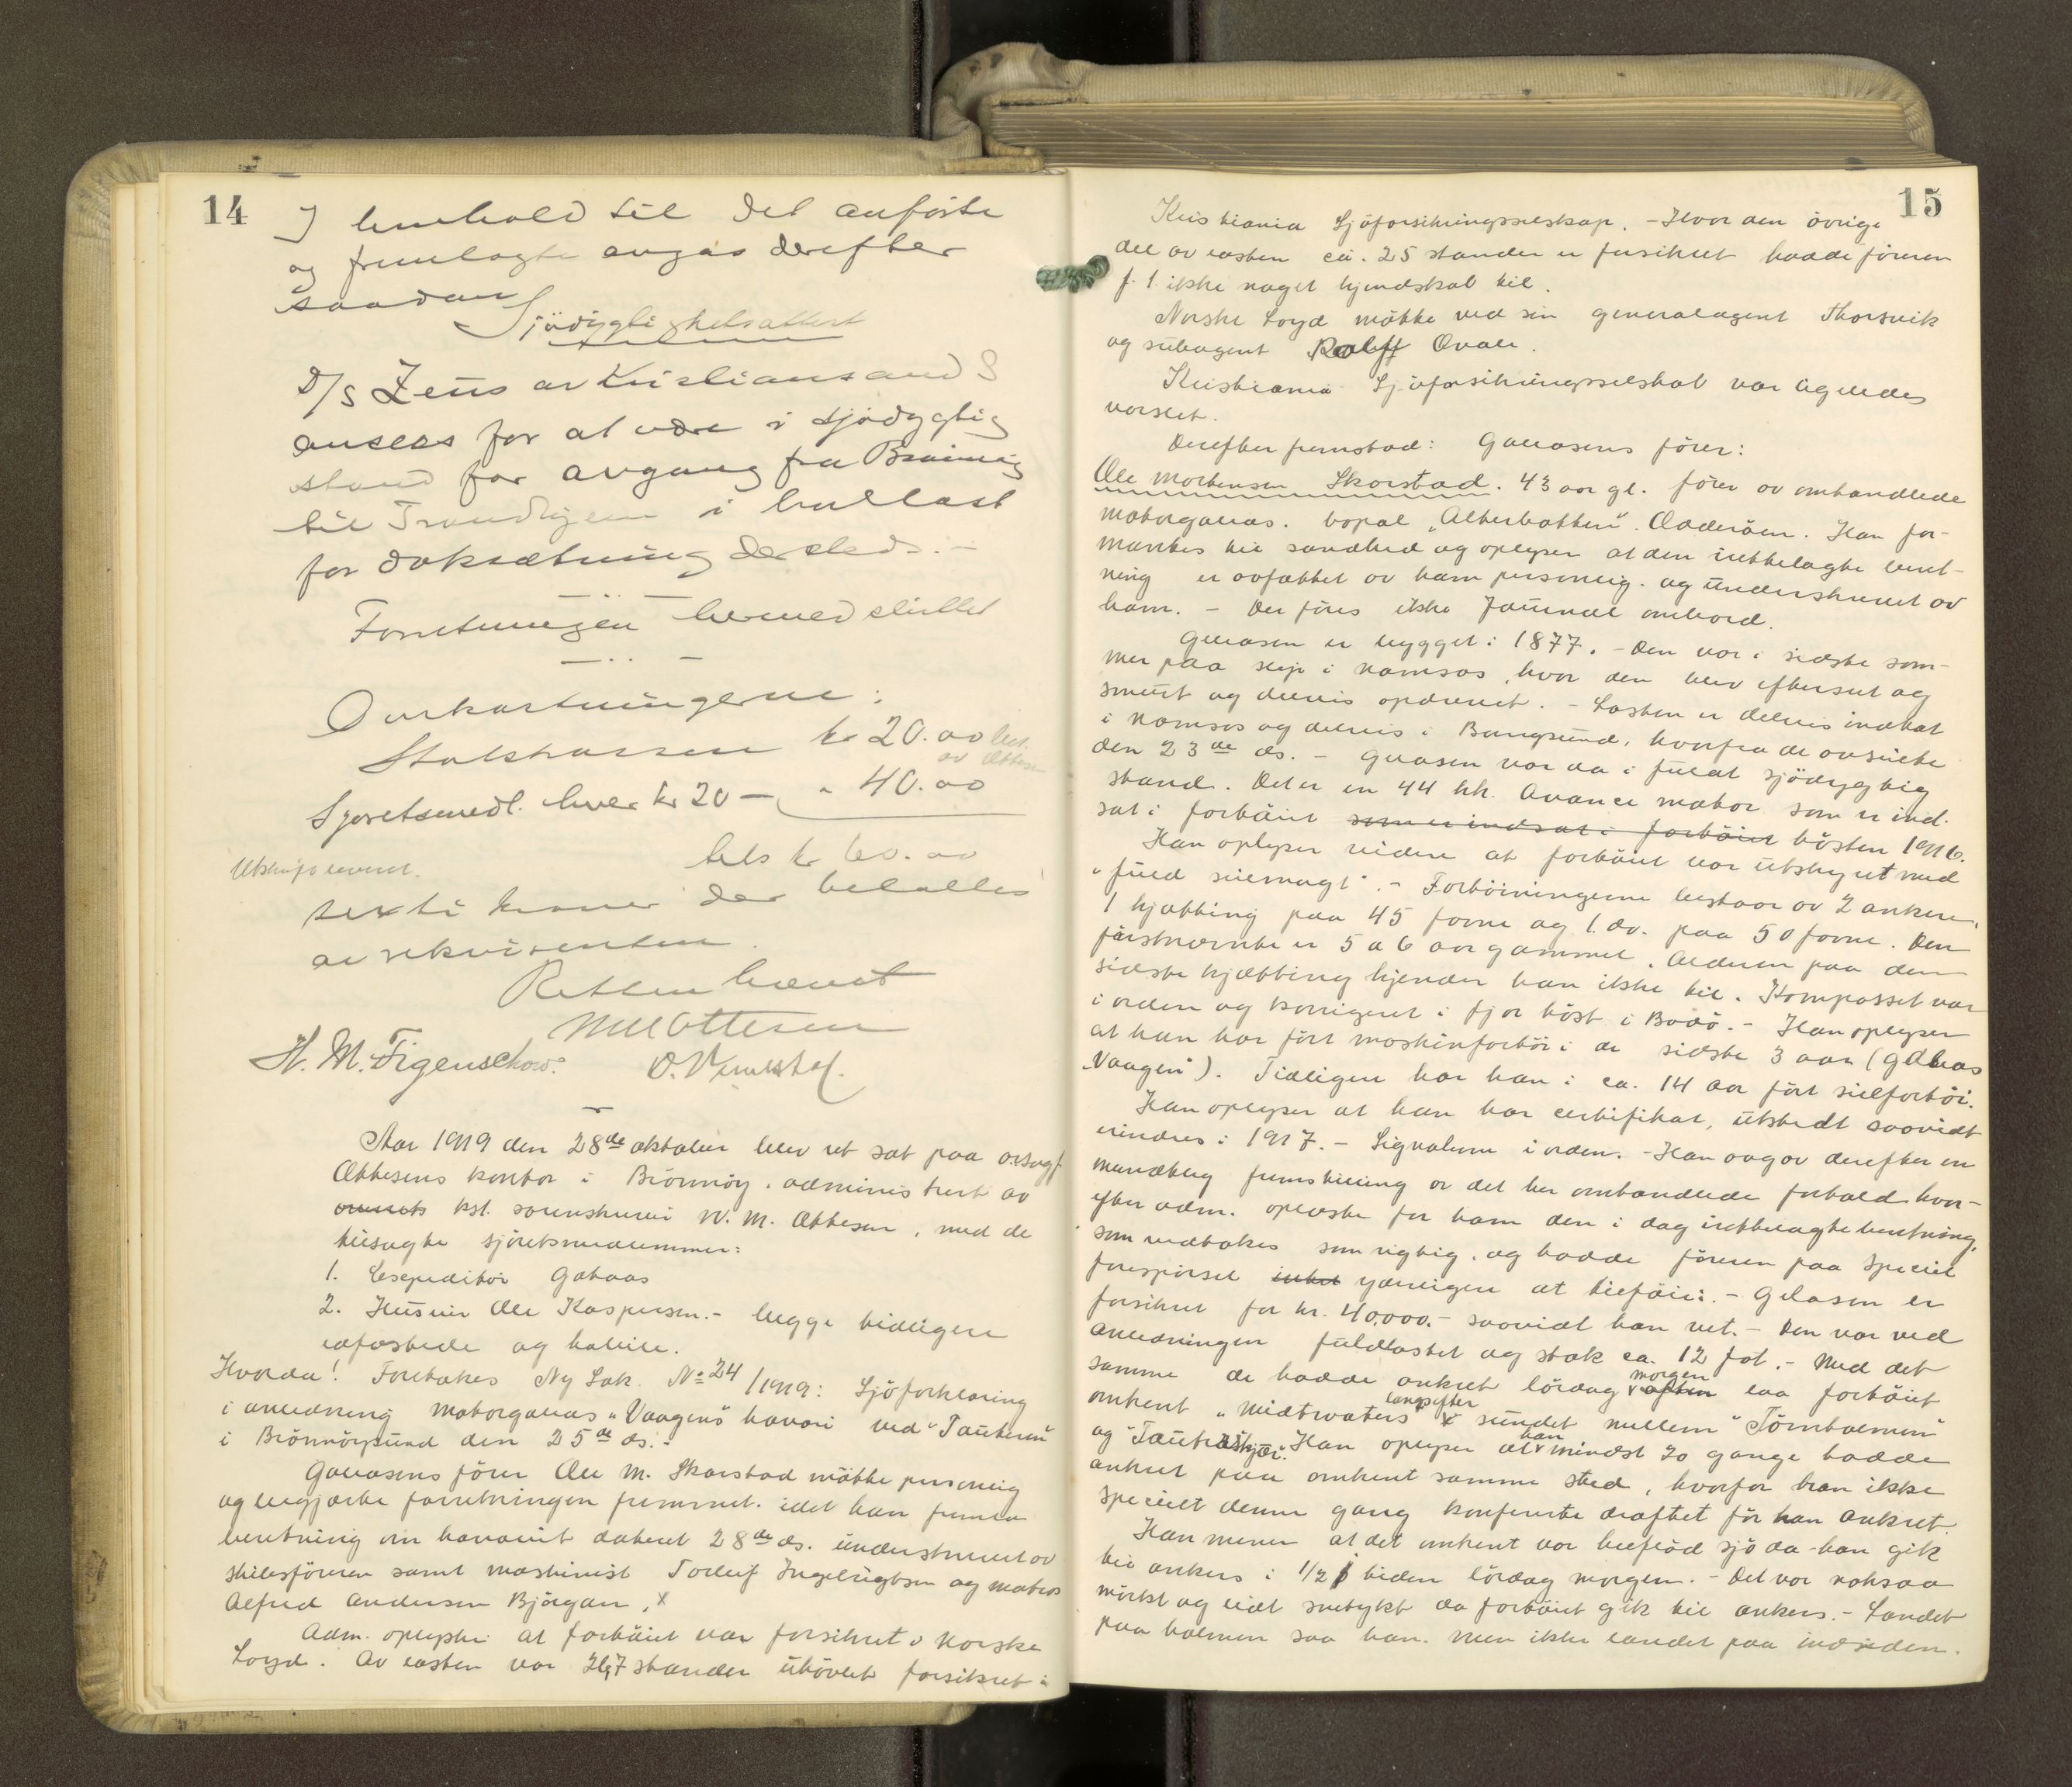 14
I henhold til det anførte
og fremlagte avgas derefter
saadan
Sjødygtighetsattest
D/S Zeus av Kristiansand S
ansees for at være i sjødygtig
stand for avgang fra Brønnøy
til Trondhjem i ballast
for doksætning dersteds. -
Forretningen hermed sluttet
Omkostningerne:
Statskassen kr 20.00 bet. av Ottesen
Sjøretsmedl. hver kr 20 - " 40.00
tils kr 60.00
Utskrift levert.
sexti kroner der betaltes
av rekvirenten.
Retten hævet
W M Ottesen
H. M. Figenschow.
Aar 1919 den 28de oktober blev ret sat paa o.r.sagf.
Ottesens kontor i Brønnøy, administrert av
kst. sorenskriver W. M. Ottesen, med de
tilsagte sjøretsmedlemmer:
1. Expeditør Gabaas
2. Huseier Ole Kaspersen. - begge tidligere
edfæstede og habile.
Hvorda! Foretokes Ny Sak. No 24/1919: Sjøforklaring
i anledning motorgaleas "Vaagens" havari ved "Tauteren"
i Brønnøysund den 25de ds. -
Galeasens fører Ole M. Skorstad møtte personlig
og begjærte forretningen fremmet. idet han fremla
beretning om havariet datert 28de ds. underskrevet av
skibsføreren samt maskinist Torleif Ingebrigtsen og matros
Alfred Andersen Bjørgan, x
Adm. oplyste at fartøiet var forsikret i Norske
Loyd. Av lasten var 16,7 stander uhøvlet forsikret i
15
Kristiania Sjøforsikringsselskap. - Hvor den øvrige
del av lasten ca. 25 stander er forsikret hadde føreren
f. t. ikke noget kjendskab til.
Norske Loyd møtte ved sin generalagent Thorsvik
og subagent Rolff Qvale.
Kristiania Sjøforsikringsselskab var ligeledes
varslet.
Derefter fremstod: Galeasens fører:
Ole Mortensen Skorstad. 43 aar gl. fører av omhandlede
motorgaleas. bopæl "Alterbotten". Otterøen. Han for-
mantes til sandhed og oplyser at den irettelagte beret-
ning er avfattet av ham personlig. og underskrevet av
ham. - Der føres ikke Journal ombord.
Galeasen er bygget i 1877. - Den var i sidste som-
mer paa slip i Namsos, hvor den blev efterset og
smurt og delvis opdrevet. - Lasten er delvis indtat
i Namsos og delvis i Bangsund, hvorfra de avseilte
den 23de ds. - Galeasen var da i fuldt sjødygtig
stand. Det er en 44 hk. Avance motor som er ind-
sat i fartøiet som er indsat i fartøiet høsten 1916.
Han oplyser videre at fartøiet var utstyret med
"fuld seilmagt". - Fortøiningerne bestaar av 2 ankere,
1 kjætting paa 45 favne og 1 do. paa 50 favne. Den
førstnævnte er 5 a 6 aar gammel. Alderen paa den
sidste kjætting kjender han ikke til. Kompasset var
i orden og korrigeret i fjor høst i Bodø. - Han oplyser
at han har ført maskinfartøi i de sidste 3 aar (galeas
"Vaagen"). Tidligere har han i ca. 14 aar ført seilfartøi.
Han oplyser at han har certifikat, utstedt saavidt
erindres i 1917. - Signalerne i orden. - Han avgav derefter en
mundtlig fremstilling av det her omhandlede forhold hvor-
efter adm. oplæste for ham den i dag irettelagte beretning,
som vedtokes som rigtig, og hadde føreren paa speciel
forespørsel intet yderligere at tilføie. - Galeasen er
forsikret for kr. 40.000. - saavidt han vet. - Den var ved
anledningen fuldlastet og stak ca. 12 fot. - Med det
samme de hadde ankret lørdag morgen aften laa fartøiet
omtrent "midtvaters" langsefter sundet mellem "Tørnholmen"
og "Tauteraskjær". Han oplyser at han mindst 20 gange hadde
ankret paa omtrent samme sted, hvorfor han ikke
specielt denne gang konfererte draftet før han ankret.
Han mener at det omtrent var halflød sjø da han gik
til ankers i 1/2 6 tiden lørdag morgen. - Det var noksaa
mørkt og lidt snetykt da fartøiet gik til ankers. - Landet
paa holmen saa han. men ikke landet paa indsiden.